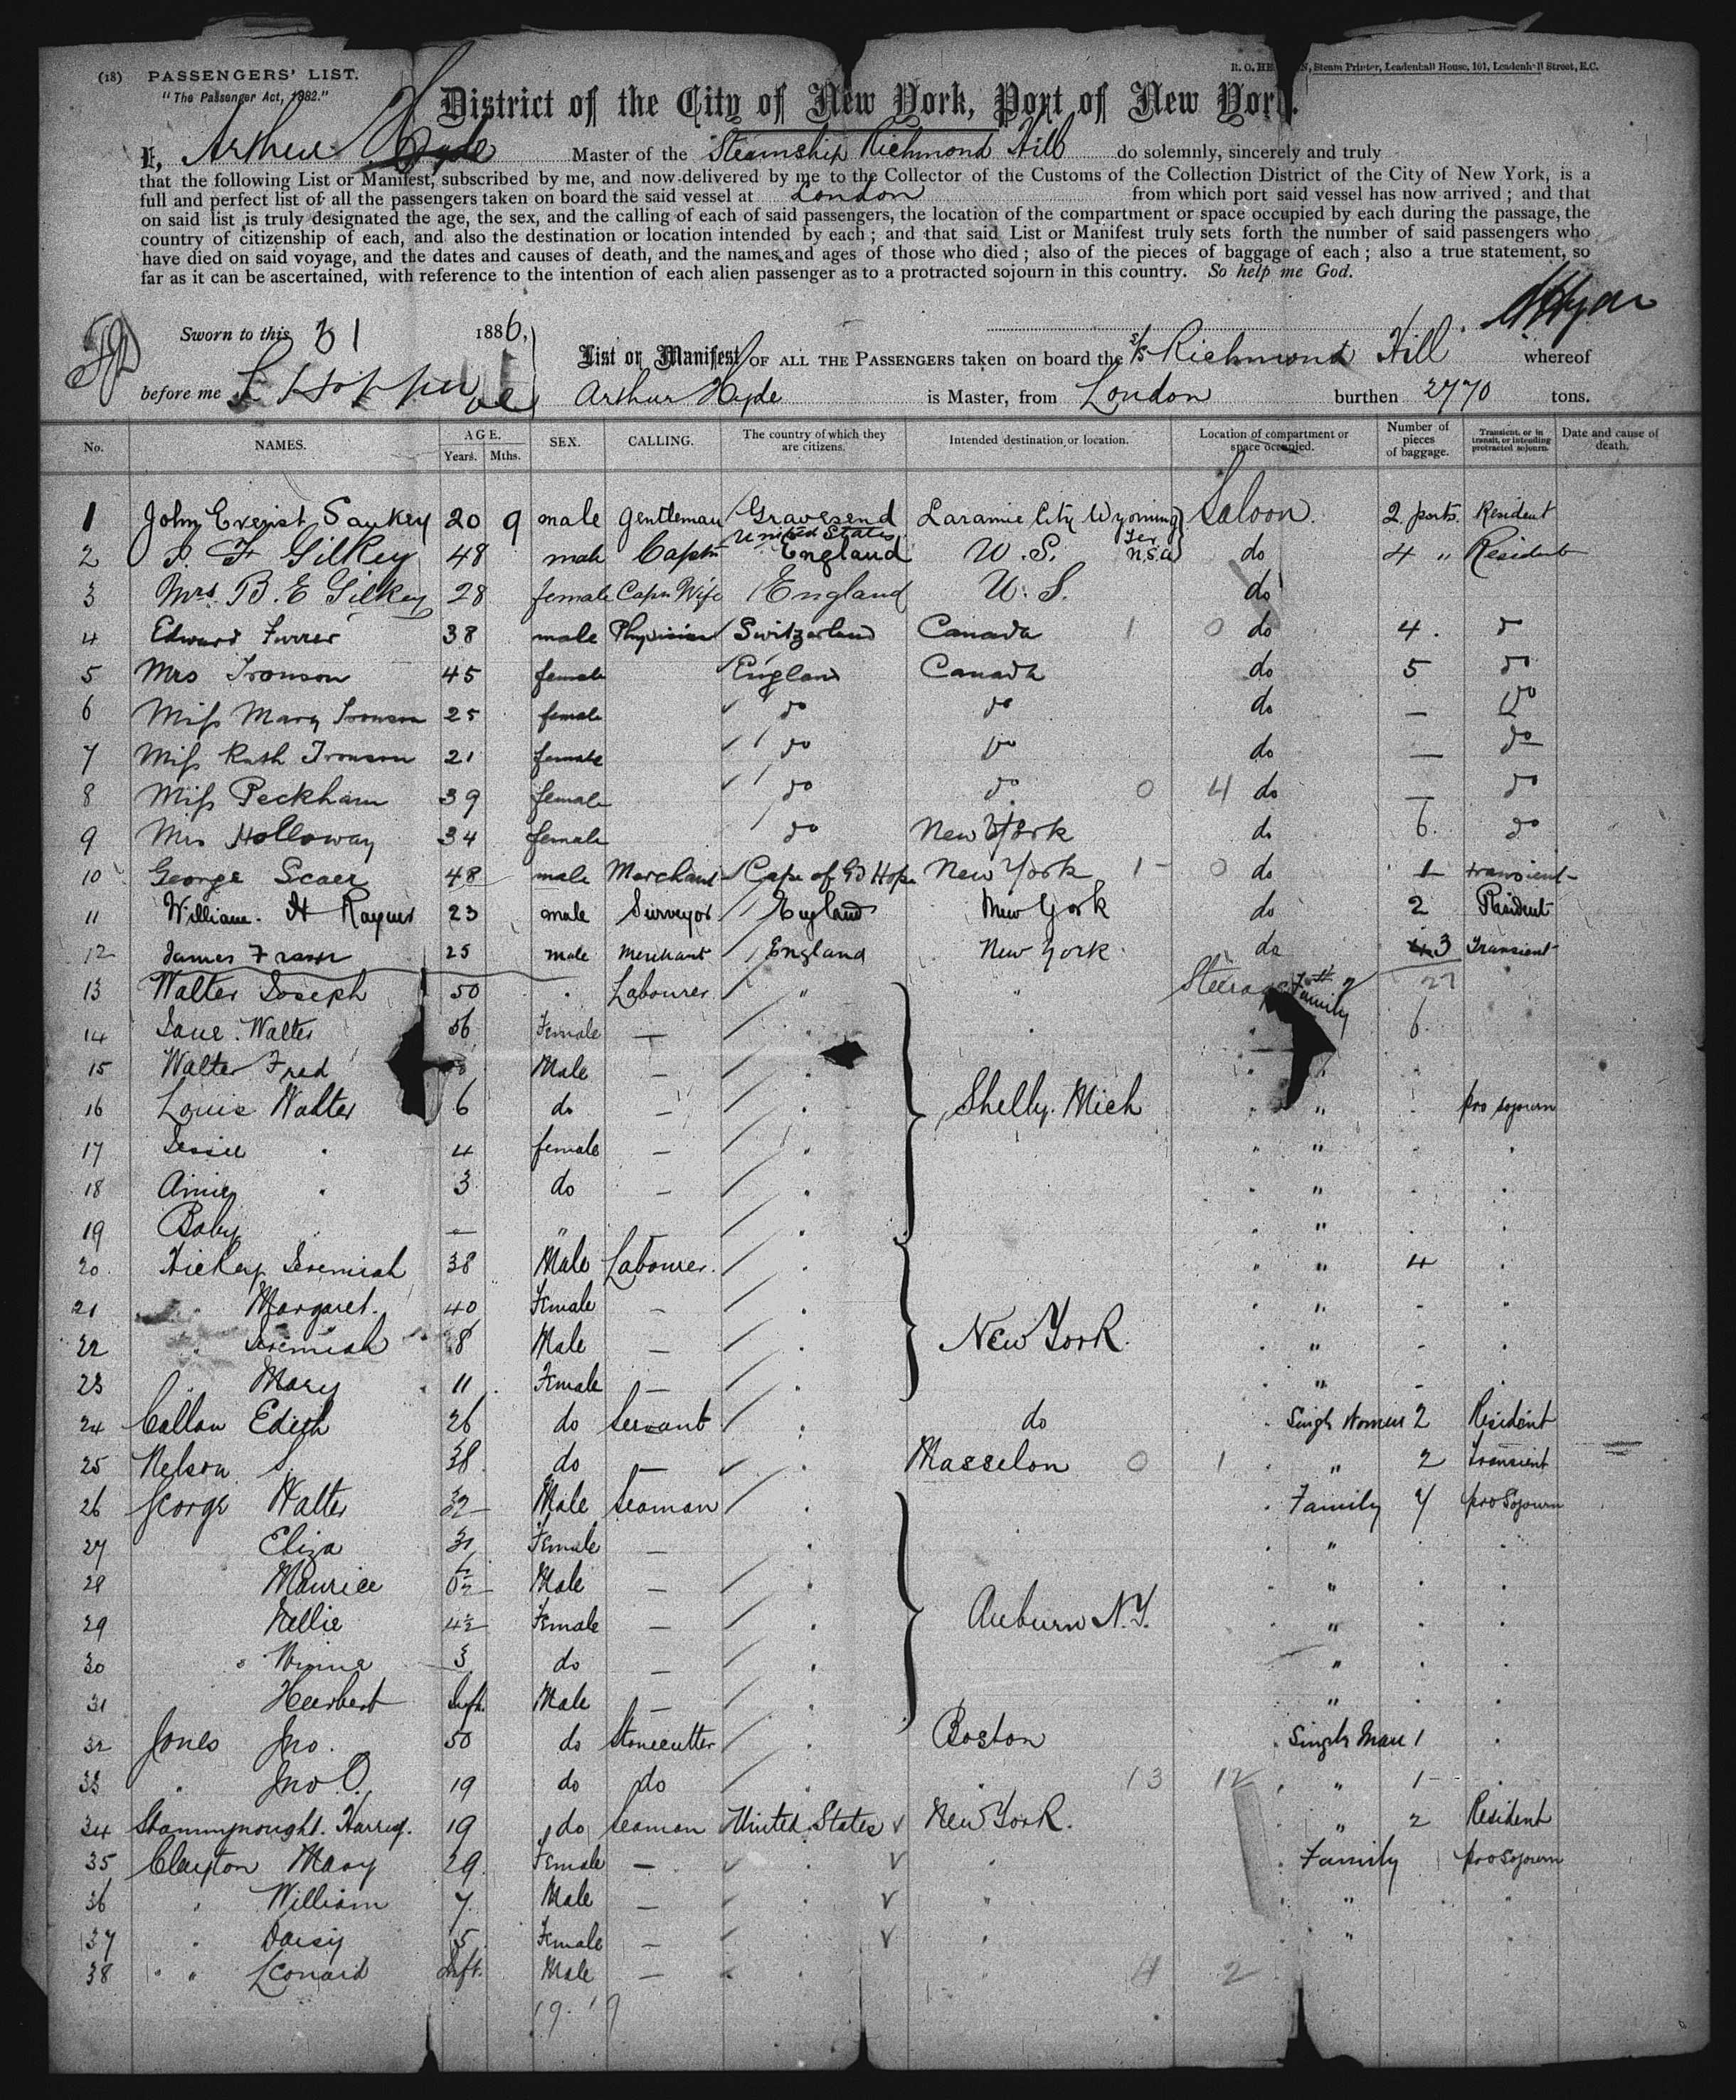 (18) PASSENGERS' LIST.
"The Passenger Act, 1882."
R. O. HE N, Steam Printer, Leadenhall House, 101, Leadenhall Street, E.C.
District of the City of New York, Port of New York.
I, Arthur Hyde Master of the Steamship Richmond Hill do solemnly, sincerely and truly
that the following List or Manifest, subscribed by me, and now delivered by me to the Collector of the Customs of the Collection District of the City of New York, is a
full and perfect list of all the passengers taken on board the said vessel at London from which port said vessel has now arrived ; and that
on said list is truly designated the age, the sex, and the calling of each of said passengers, the location of the compartment or space occupied by each during the passage, the
country of citizenship of each, and also the destination or location intended by each ; and that said List or Manifest truly sets forth the number of said passengers who
have died on said voyage, and the dates and causes of death, and the names and ages of those who died ; also of the pieces of baggage of each ; also a true statement, so
far as it can be ascertained, with reference to the intention of each alien passenger as to a protracted sojourn in this country. So help me God.
AHyde
Sworn to this 31 1886,
List or Manifest OF ALL THE PASSENGERS taken on board the s/s Richmond Hill whereof
before me Arthur Hyde is Master, from London burthen 2770 tons.
No. NAMES. AGE. Years. Mths. SEX. CALLING. The country of which they are citizens. Intended destination or location. Location of compartment or space occupied. Number of pieces of baggage. Transient, or in transit, or intending protracted sojourn. Date and cause of death.
1 John Everist Sankey 20 9 male Gentleman Gravesend Laramie City Wyoming Ter Saloon. 2 ports. Resident
2 F Gilkey 48 male Captn United States England U.S. do 4 " Resident
3 Mrs. B. E Gilkey 28 female Capn Wife England U.S. do
4 Edward Furrer 38 male Physician Switzerland Canada 1 0 do 4. do
5 Mrs Tronson 45 female England Canada do 5 do
6 Miss Mary Tronson 25 female do do do — do
7 Miss Ruth Tronson 21 female do do do — do
8 Miss Peckham 39 female do do. 0 4 do — do
9 Mrs Holloway 34 female do New York do 6. do
10 George Scaer 48 male Merchant Cape of Gd Hope New York 1 0 do 1 transient
11 William. H Rayner 23 male Surveyor England New York do 2 Resident
12 James Fraser 25 male Merchant England New York do 3 Transient
13 Walter Joseph 50 . Labourer " " Steerage Family 27
14 Jane. Walter 36 Female — " . 6
15 Walter Fred Male — .
16 Louis Walter 6 do — . Shelly. Mich " pro sojourn
17 Jessie . 4 female — . "
18 Amie . 3 do — . "
19 Baby — " . "
20. Hickey Jeremiah 38 Male Labourer. . " 4
21 " Margaret. 40 Female — . "
22 " Jeremiah 8 Male — . New York. "
23 " Mary 11 Female — . "
24 Callan Edith 26 do Servant . do Single Women 2 Resident
25 Nelson S. 38 do — . Masselon 0 1 " 2 transient
26 George Walter 32 Male Seaman . Family 7 pro Sojourn
27 Eliza 31 Female — . "
28 Maurice 6½ Male — . "
29 Nellie 4½ Female — . Auburn N.Y. "
30 " Minna 3 do — . "
31 Heerbert Inft. Male — . "
32 Jones Jno. 50 do Stonecutter . Boston Single Man 1
33 " Jno O. 19 do do . 13 12 " 1
34 Harry. 19 do Seaman United States New York. " 2 Resident
35 Clayton Mary 29. Female — . Family 1 pro Sojourn
36 " William 7. Male — . " "
37 " Daisy 5 Female — . "
38 " " Leonard Inft. Male — . 4 2
19. 19